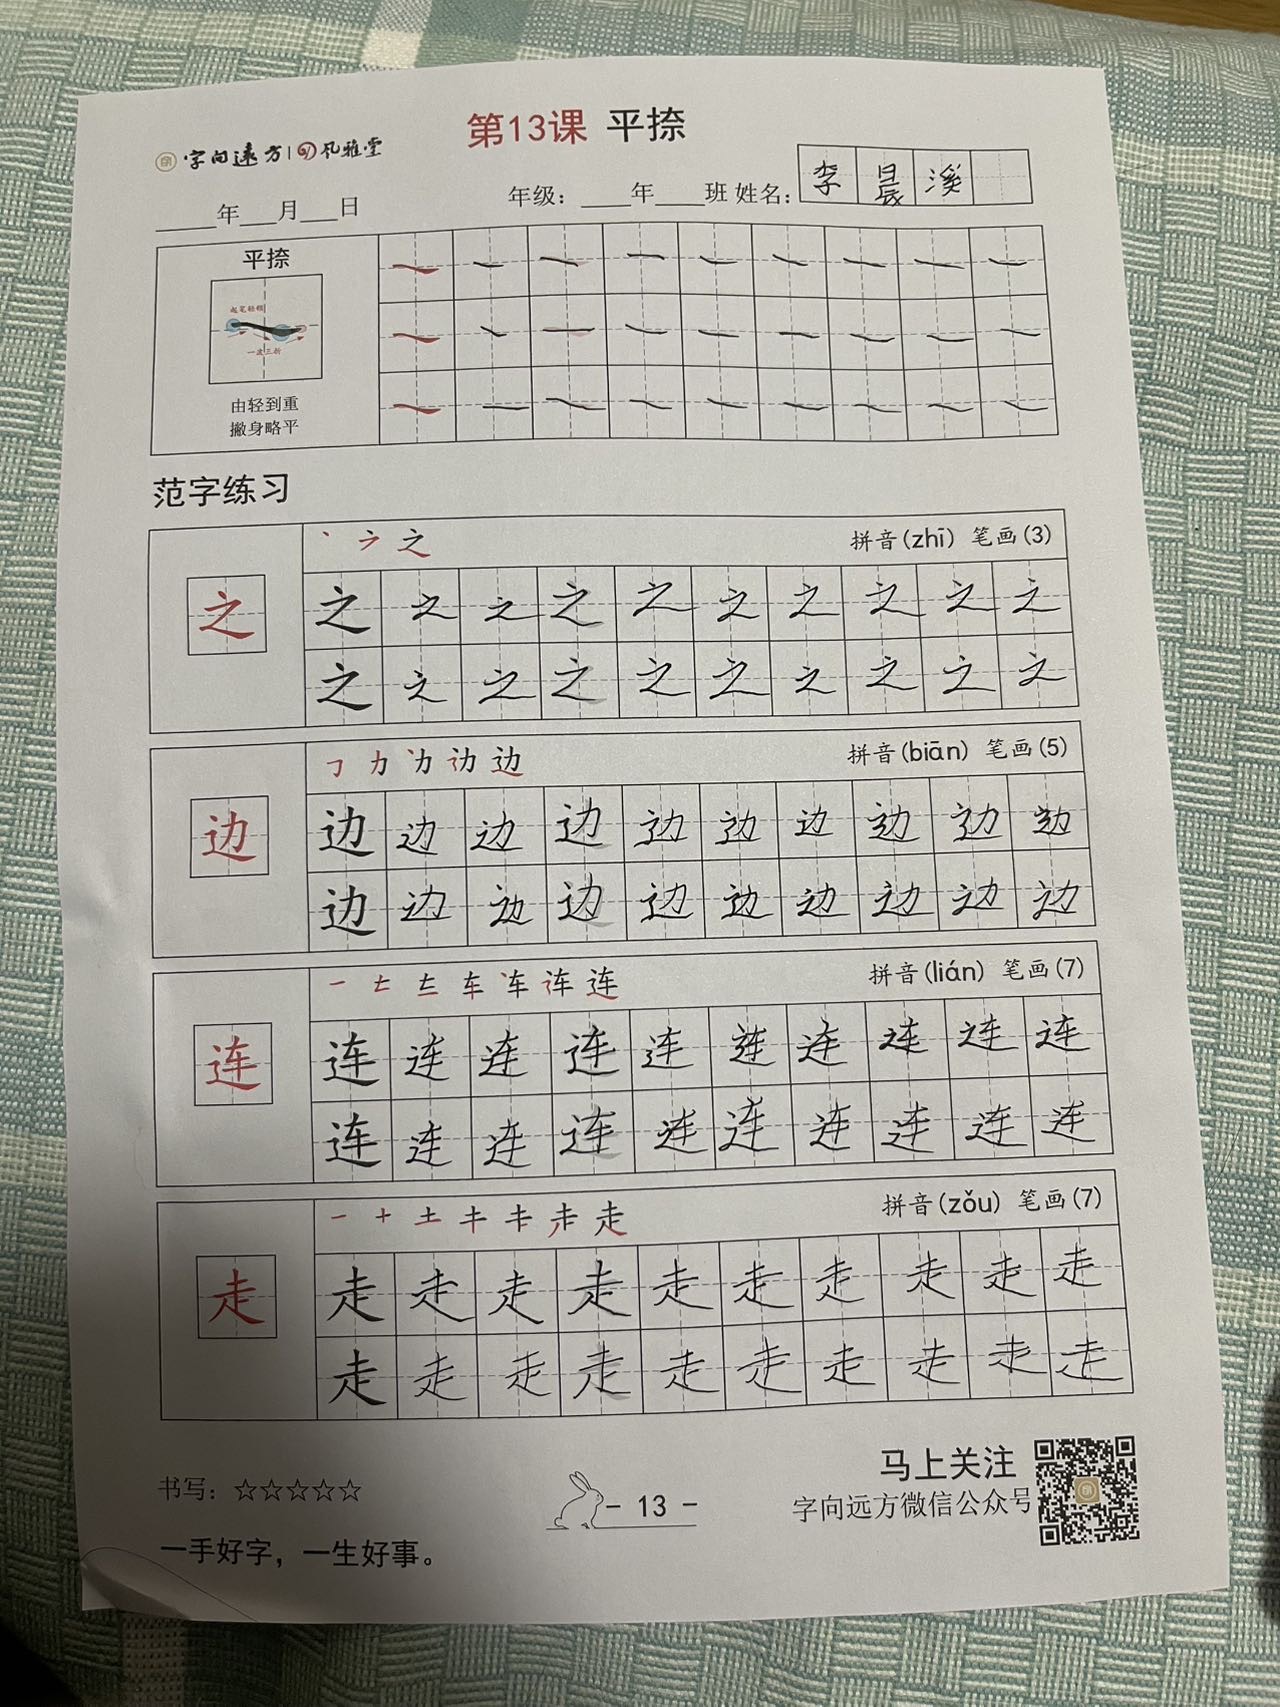 第13课 平捺
字向远方 风雅堂
李晨溪
____年___月___日 年级：____年____班 姓名：
平捺
起笔轻顿
一波三折
由轻到重
撇身略平
范字练习
丶 ㇇ 之 拼音(zhī) 笔画(3)
之 之 之 之 之 之 之 之 之 之 之
之 之 之 之 之 之 之 之 之 之
力 边 拼音(biān) 笔画(5)
边 边 边 边 边 边 边 边 边 边 边
边 边 边 边 边 边 边 边 边 边
一 车 连 拼音(lián) 笔画(7)
连 连 连 连 连 连 连 连 连 连 连
连 连 连 连 连 连 连 连 连 连
一 十 土 走 拼音(zǒu) 笔画(7)
走 走 走 走 走 走 走 走 走 走 走
走 走 走 走 走 走 走 走 走 走
马上关注
书写：☆☆☆☆☆
- 13 -
字向远方微信公众号
一手好字，一生好事。